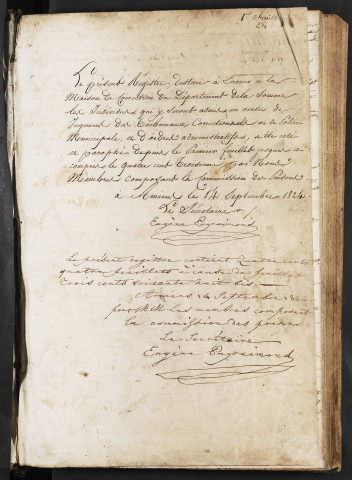 1er feuillet
Le présent Registre, destiné à Ecrouer à la
Maison de Correction du Département de la Somme
les Individus qui y seront amenés en vertu de
Jugement des Tribunaux Correctionnels ou de Police
Municipale, et d'ordres administratifs, a été coté
et paraphé depuis le Premier feuillet jusques et
compris le quatre cent Troisième par Nous
Membres composant la Commission des Prisons
à Amiens le 14 Septembre 1824
Le Secrétaire
Eugène Puyraimond
Le présent registre contient Quatre cent
quatre feuillets à cause du feuillet
trois cents soixante huit bis
Amiens Septembre
pour MM. Les membres composant
la commission des prisons
Le Secrétaire
Eugène Puyraimond